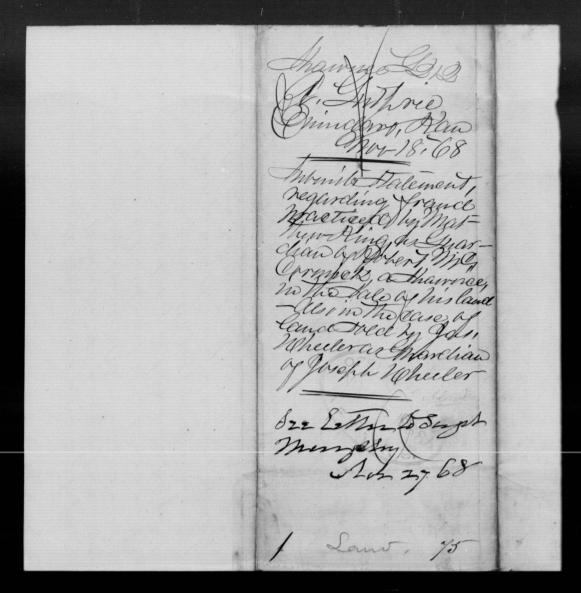 Shawnee
A. Guthrie
Quindaro, Kan
Nov 18, 68
Submits Statement,
regarding fraud
practiced by Mat-
thew King as Guar-
dian of Robert Mc
Cormick, a Shawnee,
in the sale of his land
- also in the case of
land sold by Jas.
Wheeler as Guardian
of Joseph Wheeler
See Letter to Supt
Murphy
Nov 27, 68
1 Land. 75